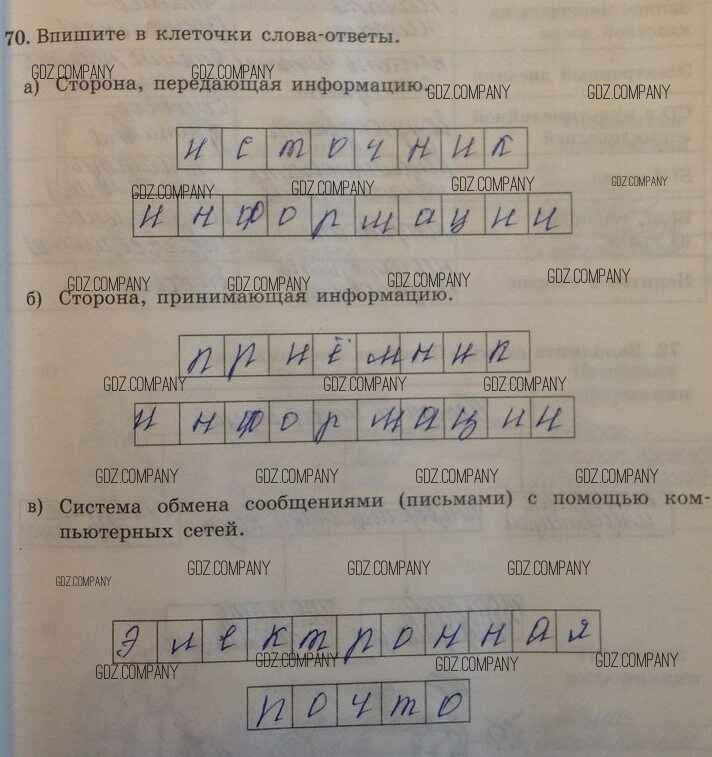 70. Впишите в клеточки слова-ответы.
GDZ.COMPANY GDZ.COMPANY
а) Сторона, передающая информацию.
GDZ.COMPANY GDZ.COMPANY
источник
GDZ.COMPANY GDZ.COMPANY GDZ.COMPANY GDZ.COMPANY
информации
GDZ.COMPANY GDZ.COMPANY GDZ.COMPANY GDZ.COMPANY
б) Сторона, принимающая информацию.
приёмник
GDZ.COMPANY GDZ.COMPANY GDZ.COMPANY
информации
GDZ.COMPANY GDZ.COMPANY GDZ.COMPANY GDZ.COMPANY
в) Система обмена сообщениями (письмами) с помощью ком-
пьютерных сетей.
GDZ.COMPANY GDZ.COMPANY GDZ.COMPANY GDZ.COMPANY
электронная
GDZ.COMPANY GDZ.COMPANY GDZ.COMPANY GDZ.COMPANY
почто